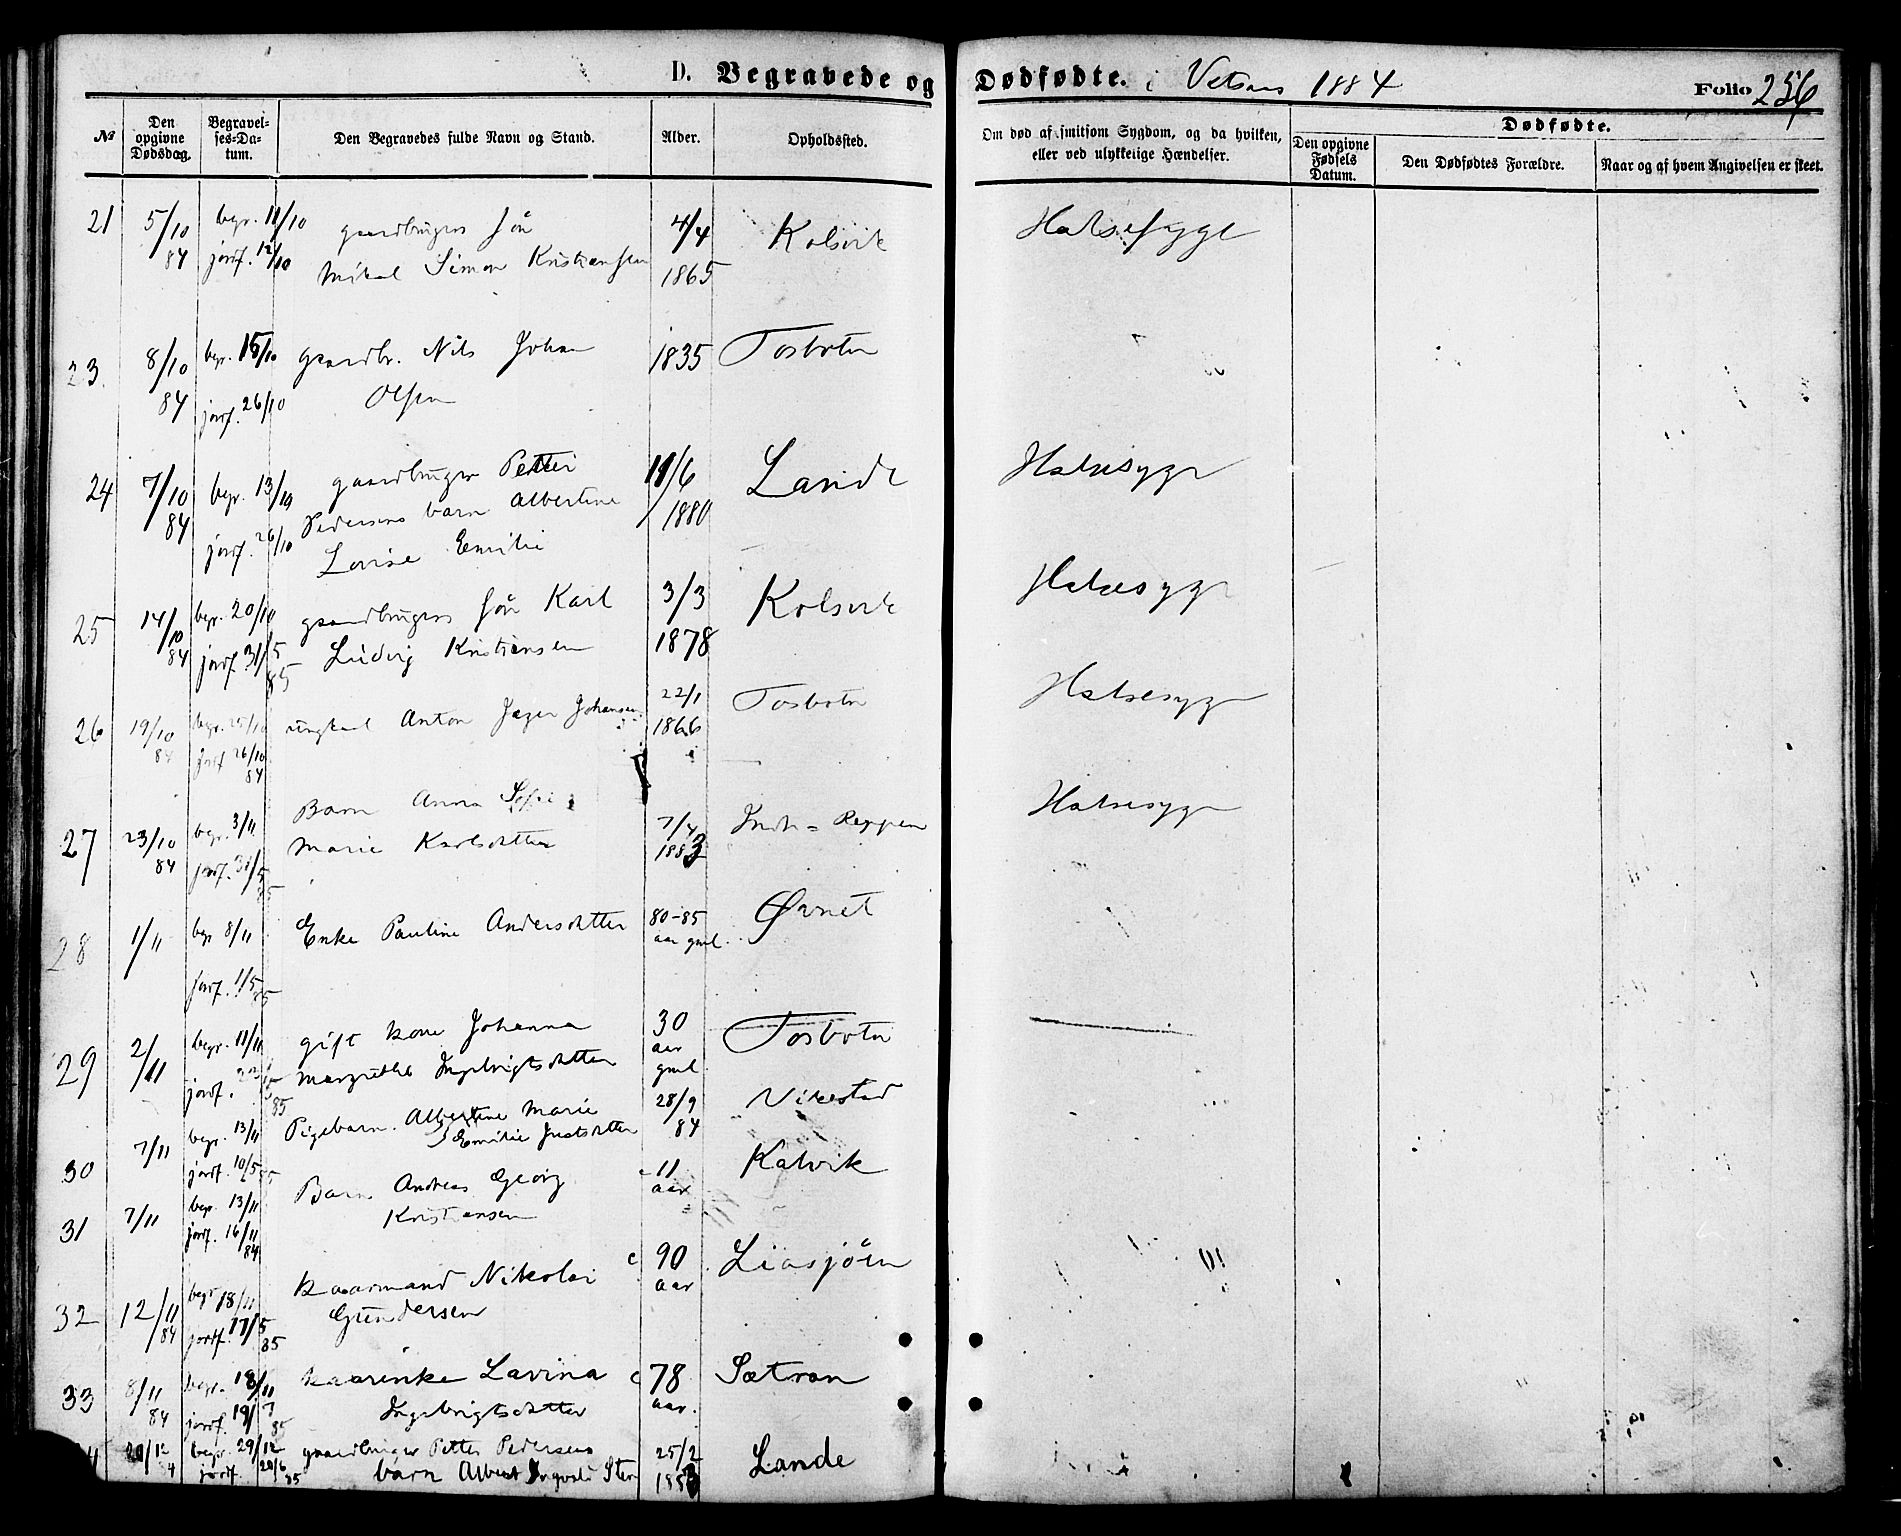 D. Begravede og Dødfødte. i Vetsan 1884 Folio 256
№
Den opgivne Dødsdag.
Begravel-ses-Da-tum.
Den Begravedes fulde Navn og Stand.
Alder.
Opholdssted.
Om død af smitsom Sygdom, og da hvilken, eller ved ulykkelige Hændelser.
Dødfødte.
Den opgivne Fødsels Datum.
Den Dødfødtes Forældre.
Naar og af hvem Angivelsen er skeet.
21 5/10 84 begr. 11/10 jordf. 12/10 gaardbrugers søn 4/4 1865 Kolsvik Halsesyge
Mikal Simon Kristiansen
23. 8/10 84 begr. 15/10 jordf. 26/10 gaardbr. Nils Johan 1835 Tosbotn
Olsen
24 7/10 84 begr. 13/10 jordf. 26/10 gaardbruger Petter 11/6 1880 Lande Halsesyge
Pedersens barn Albertine
Lovise Emilie
25 14/10 84 begr. 20/10 jordf. 31/5 85 gaardbrugers søn Karl 3/3 1878 Kolsvik Halsesyge
Ludvig Kristiansen
26 19/10 84 begr. 25/10 jordf. 26/10 84 ungkarl Anton Jæger Johansen 22/1 1866 Tosbotn Halsesyge
27 23/10 84 begr. 3/11 jordf. 31/5 85 Barn Anna Sofie 7/4 1883 Indr = Reppen Halsesyge
Marie Karlsdatter
28 1/11 begr 8/11 jordf. 1/5 85 Enke Pauline Andersdatter 80-85 aar gml. Øvnet
29 2/11 begr. 11/11 jordf. 85 gift kone Johanna 30 aar gml Tosbotn
Margrethe Ingebrigtsdatter
30 7/11 begr. 13/11 jordf. 10/5 85 Pigebarn. Albertine Marie 28/9 84 Vikestad
Emilie Justsdatter
31 7/11 begr. 13/11 jordf. 16/11 84 Barn Andreas Georg c 11 aar Kalvik
Kristiansen
32 12/11 84 begr 18/11 jordf. 17/5 85 kaarmand Nikolai c 90 aar Liasjøen
Gundersen
33 8/11 84 begr. 18/11 jordf. 19/7 85 kaarenke Lavina c 78 aar. Sætran
Ingebrigtsdatter
20/12 begr. 29/12 jordf. 28/6 85 gaardbruger Petter Pedersens 25/2 1883 Lande
barn Albert Ingvald